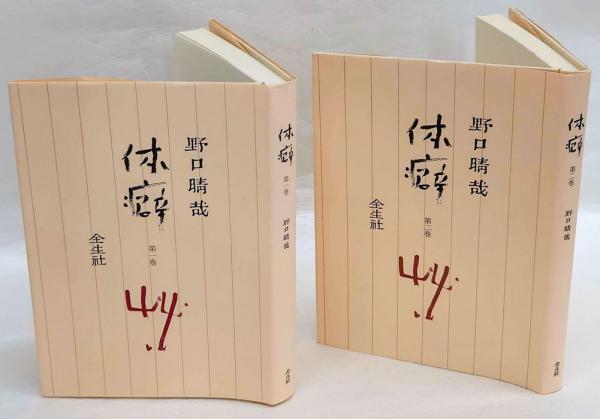 野口晴哉
体癖
第一巻
全生社
体癖
第一巻
野口晴哉
全生社
野口晴哉
体癖
第二巻
全生社
体癖
第二巻
野口晴哉
全生社